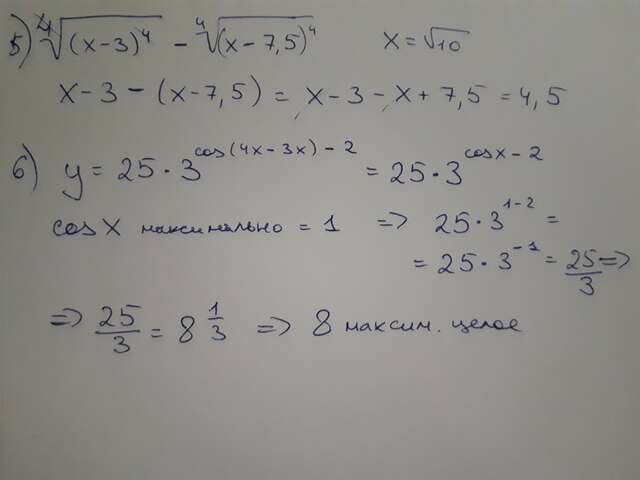 5) ⁴√(x-3)⁴ - ⁴√(x-7,5)⁴ x=√10
x-3-(x-7,5) = x-3-x+7,5 = 4,5
6) y = 25·3^(cos(4x-3x)-2) = 25·3^(cosx-2)
cosx максимально = 1 => 25·3^(1-2) =
= 25·3^(-1) = 25/3 =>
=> 25/3 = 8 1/3 => 8 максим. целое